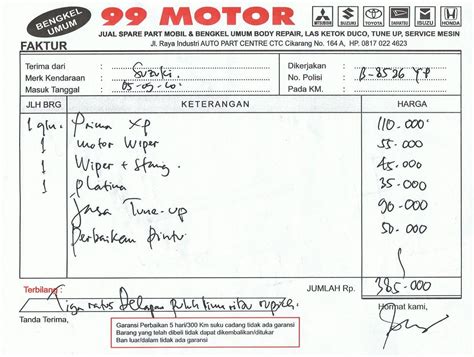 BENGKEL UMUM
99 MOTOR
MITSUBISHI DAIHATSU TOYOTA SUZUKI ISUZU HONDA
JUAL SPARE PART MOBIL & BENGKEL UMUM BODY REPAIR, LAS KETOK DUCO, TUNE UP, SERVICE MESIN
Jl. Raya Industri AUTO PART CENTRE CTC Cikarang No. 164 A, HP. 0817 022 4623
FAKTUR
Terima dari : Dikerjakan :
Merk Kendaraan : Suzuki No. Polisi : B-8526 YP
Masuk Tanggal : 05-09-10 Pada KM. :
JLH BRG KETERANGAN HARGA
1 Prima XP 110-000
1 motor Wiper 55-000
1 Wiper + Stang 45-000
1 Platina 35-000
Jasa Tune-up 90-000
Perbaiken Pintu 50-000
JUMLAH Rp. 385-000
Terbilang: Tiga ratus Delapan puluh lima ribu rupiah
Tanda Terima, Hormat kami,
Garansi Perbaikan 5 hari/300 Km suku cadang tidak ada garansi
Barang yang telah dibeli tidak dapat dikembalikan/ditukar
Ban luar/dalam tidak ada garansi